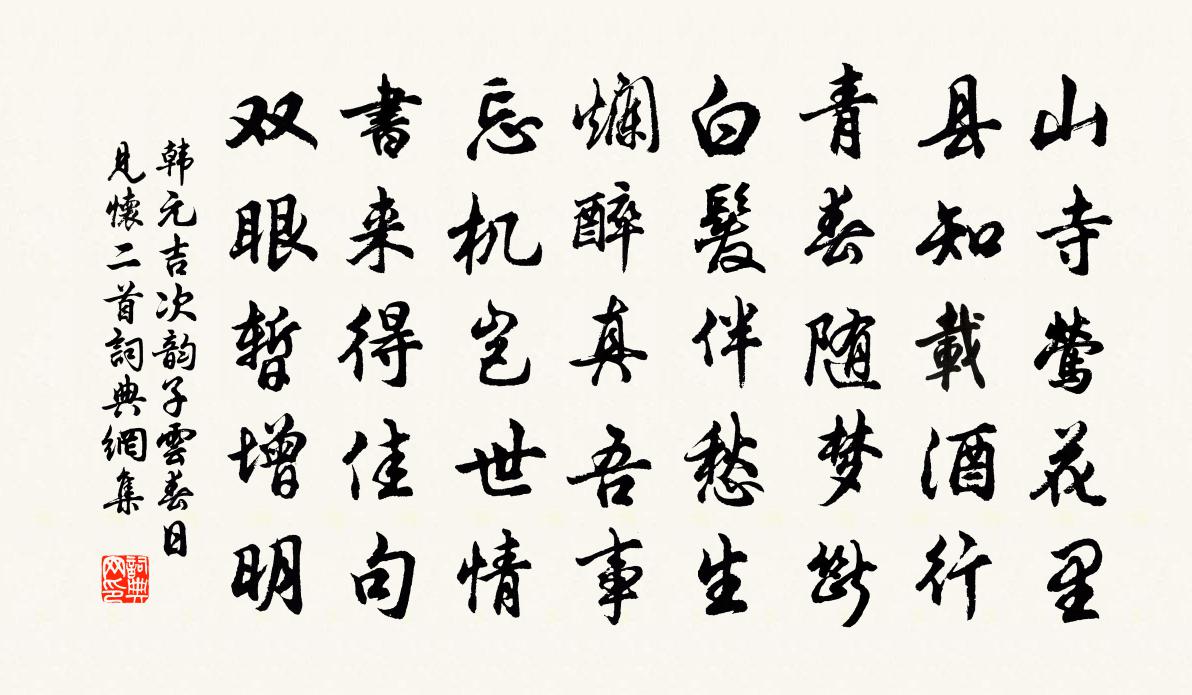 山寺莺花里
县知載酒行
青春随梦断
白髮伴愁生
爛醉真吾事
忘机岂世情
書来得佳句
双眼暫增明
韩元吉次韵子雲春日
見懷二首詞典網集
詞典网印